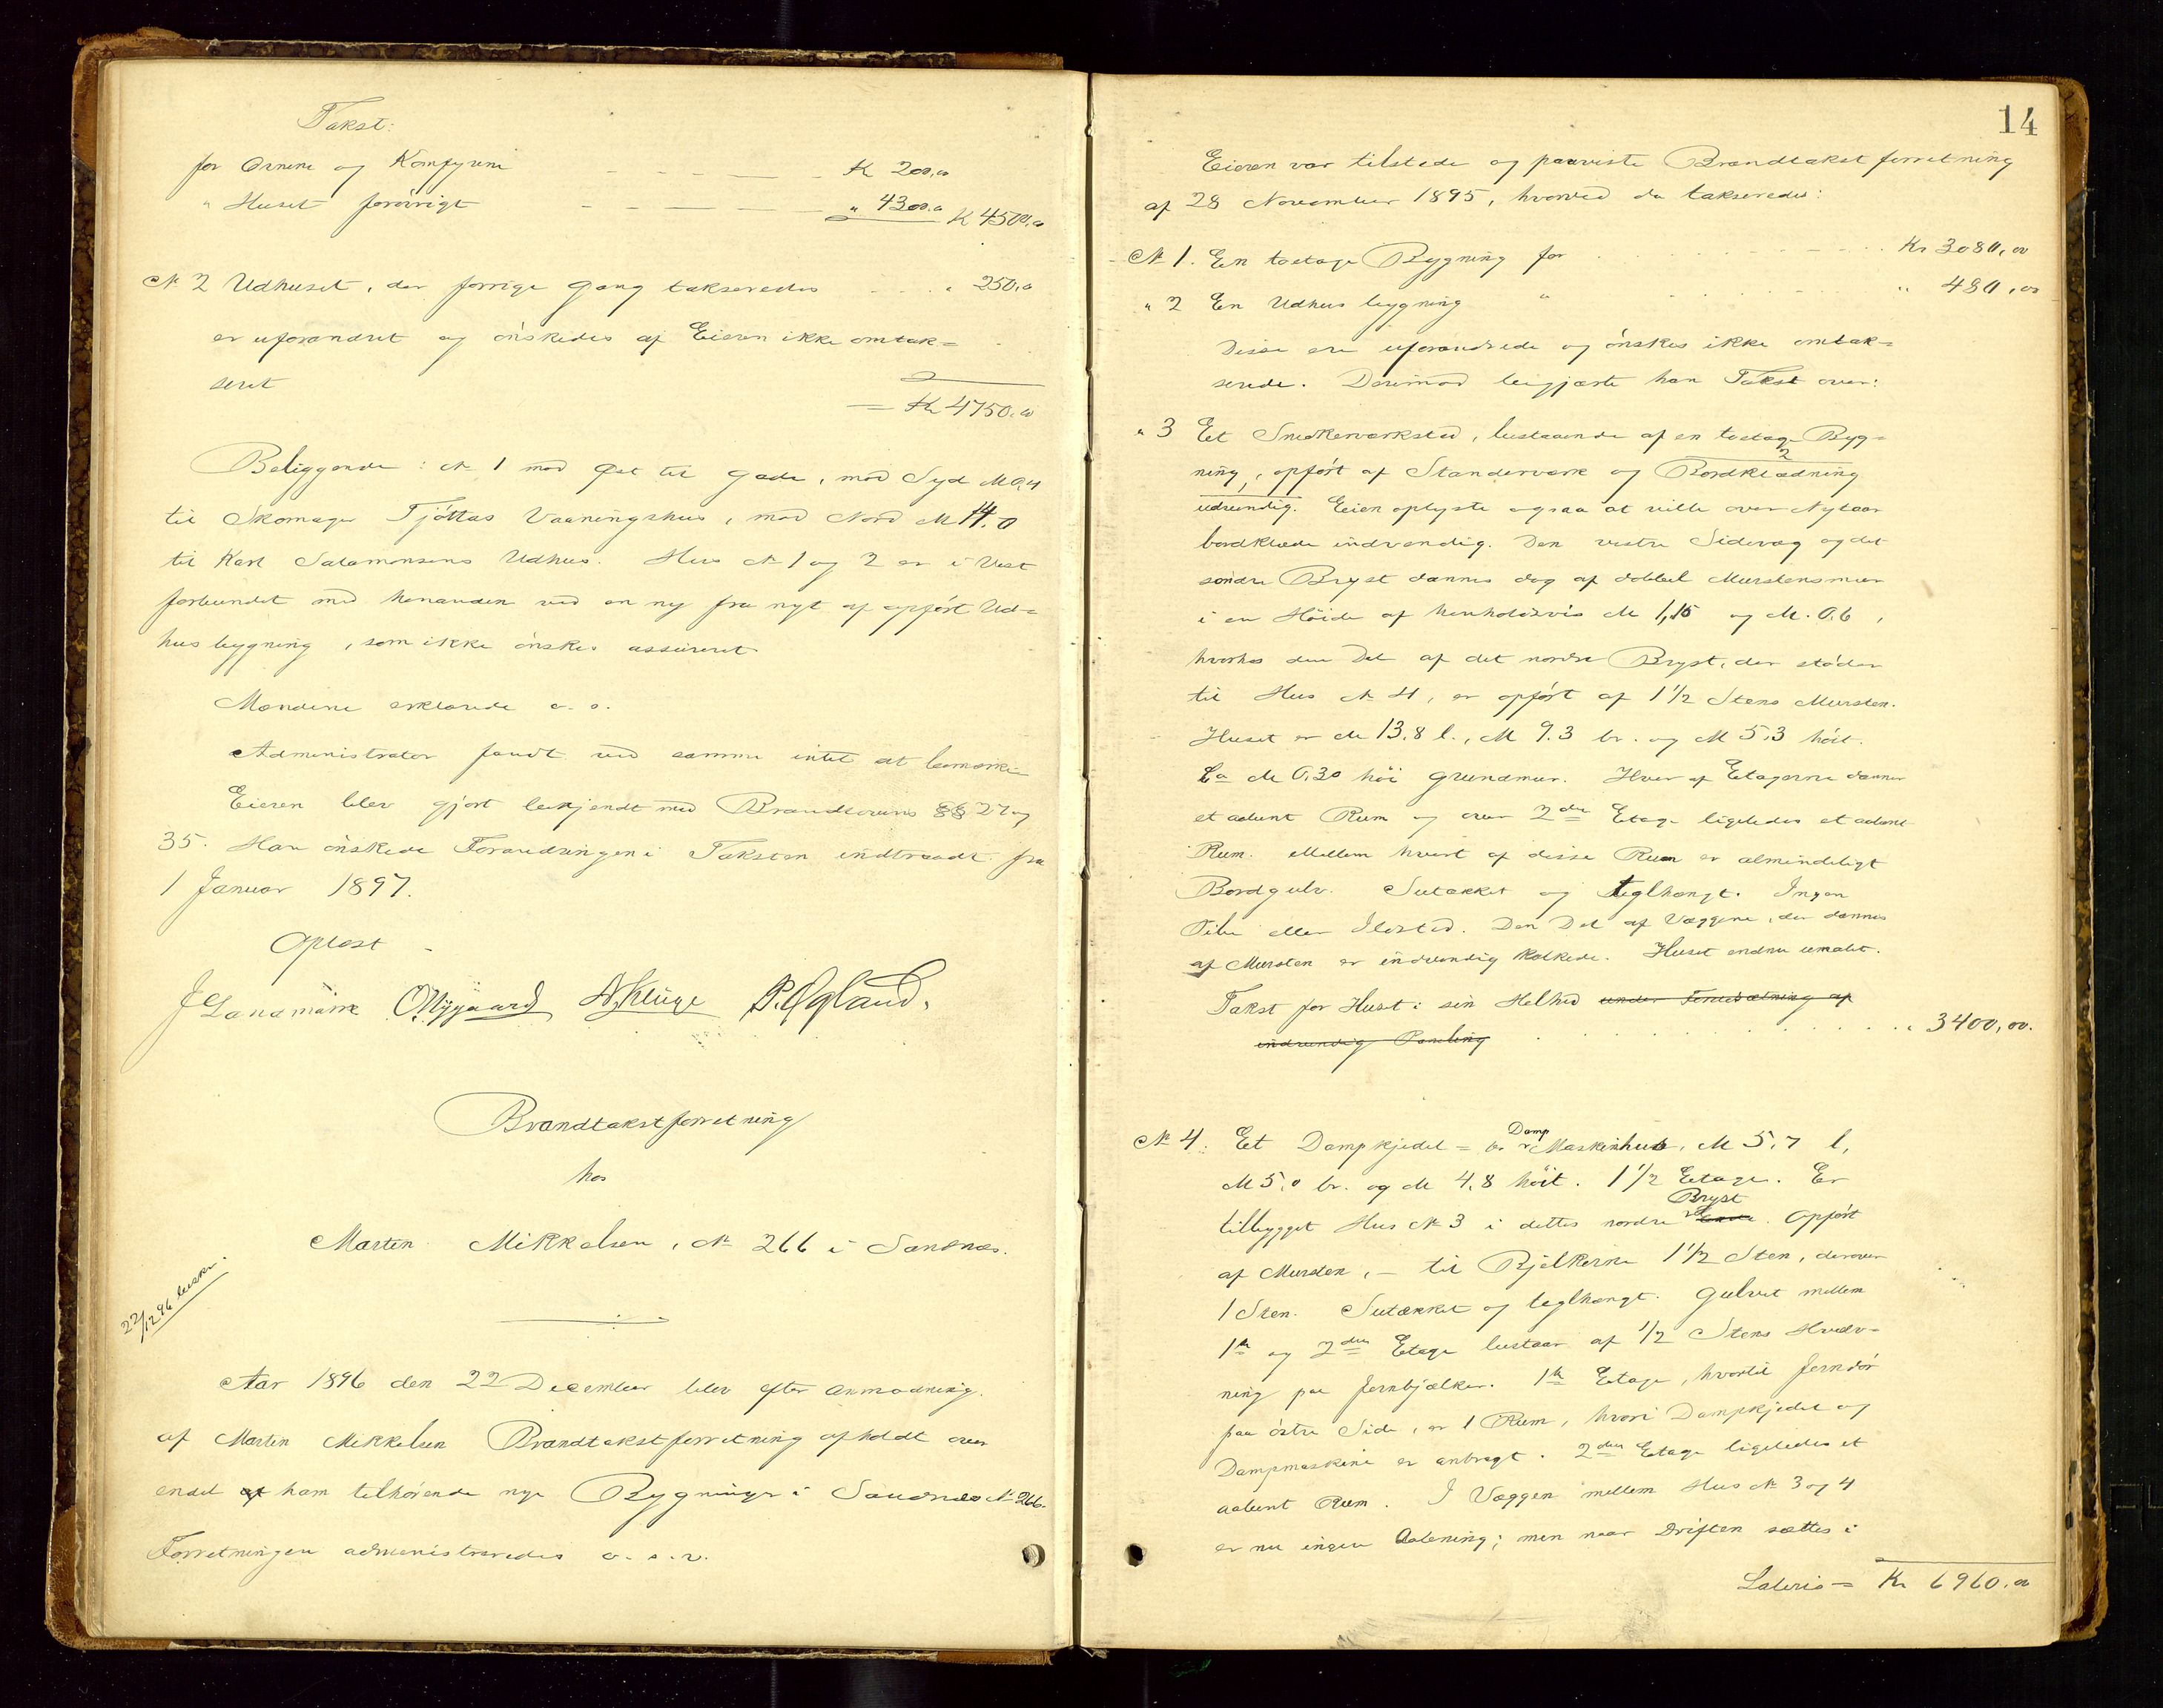 Takst:
for Ovnene og Komfyrene Kr 200,00
" Huset forövrigt " 4300,00 Kr 4500,00
No 2 Udhuset, der forrige Gang takseredes " 250,00
er uforandret og önskedes af Eieren ikke omtak=
seret
= Kr 4750,00
Beliggende: No 1 mod Øst til Gade, mod Syd M 0,4
til Skomager Tjöttas Vaaningshus, mod Nord M 14.0
til Karl Salamonsens Udhus. Hus No 1 og 2 er i Vest
forbundet med hinanden ved en ny fra nyt af opfört Ud=
husbygning, som ikke önskes assureret.
Mændene erklærede o. s.
Administrator fandt ved samme intet at bemærke
Eieren blev gjort bekjendt med Brandlovens §§ 27 og
35. Han önskede Forandringen i Taksten indtraadt fra
1 Januar 1897.
Oplæst
J Landmark O Nygaard A Kluge P. Øgland.
Brandtakstforretning
hos
Martin Mikkelsen, No 266 i Sandnæs.
22/12 96 beskr.
Aar 1896 den 22 December blev efter Anmodning
af Martin Mikkelsen Brandtakstforretning afholdt over
endel af ham tilhörende nye Bygninger i Sandnæs No 266.
Forretningen administreredes o. s. v.
14
Eieren var tilstede og paaviste Brandtakstforretning
af 28 November 1895, hvorved da takseredes:
No 1. En toetages Bygning for Kr 3080,00
" 2 En Udhusbygning " " 480,00
Disse ere uforandrede og önskes ikke omtak=
serede. Derimod begjærte han Takst over:
" 3 Et Snedkerværksted, bestaaende af en toetages Byg=
ning, opfört af Standerværk og Bordklædning
udvendig. Eieren oplyste ogsaa at ville over Nytaar
bordklæde indvendig. Den vestre Sidevæg og det
söndre Bryst dannes dog af dobbel Murstensmur
i en Höide af henholdsvis M 1,15 og M. 0.6,
hvorhos den Del af det nordre Bryst, der stöder
til Hus No 4, er opfört af 1 1/2 Stens Mursten.
Huset er M 13.8 l., M 9.3 br. og M 5.3 höit.
Ca M 0,30 höi Grundmur. Hver af Etagerne danner
et aabent Rum og over 2den Etage ligeledes et aabent
Rum. Mellem hvert af disse Rum er almindeligt
Bordgulv. Sutækket og teglhængt. Ingen
Pibe eller Ildsted. Den Del af Væggene, der dannes
af Mursten er indvendig kalkede. Huset endnu umalet.
Takst for Huset i sin Helhed under Forudsætning af
indvendig Paneling " 3400,00.
No 4. Et Dampkjedel= og Damp Maskinhus, M 5.7 l,
M 5.0 br. og M 4,8 höit. 1 1/2 Etage. Er
tilbygget Hus No 3 i dettes nordre Bryst Ende. Opfört
af Mursten, – til Bjelkerne 1 1/2 Sten, derover
1 Sten. Sutækket og teglhængt. Gulvet mellem
1ste og 2den Etage bestaar af 1/2 Stens Hvælv=
ning paa Jernbjælker. 1ste Etage, hvortil Jerndör
paa östre Side, er 1 Rum, hvori Dampkjedel og
Dampmaskine er anbragt. 2den Etage ligeledes et
aabent Rum. I Væggen mellem Hus No 3 og 4
er nu ingen Aabning; men naar Driften sættes i
Lateris = Kr 6960,00